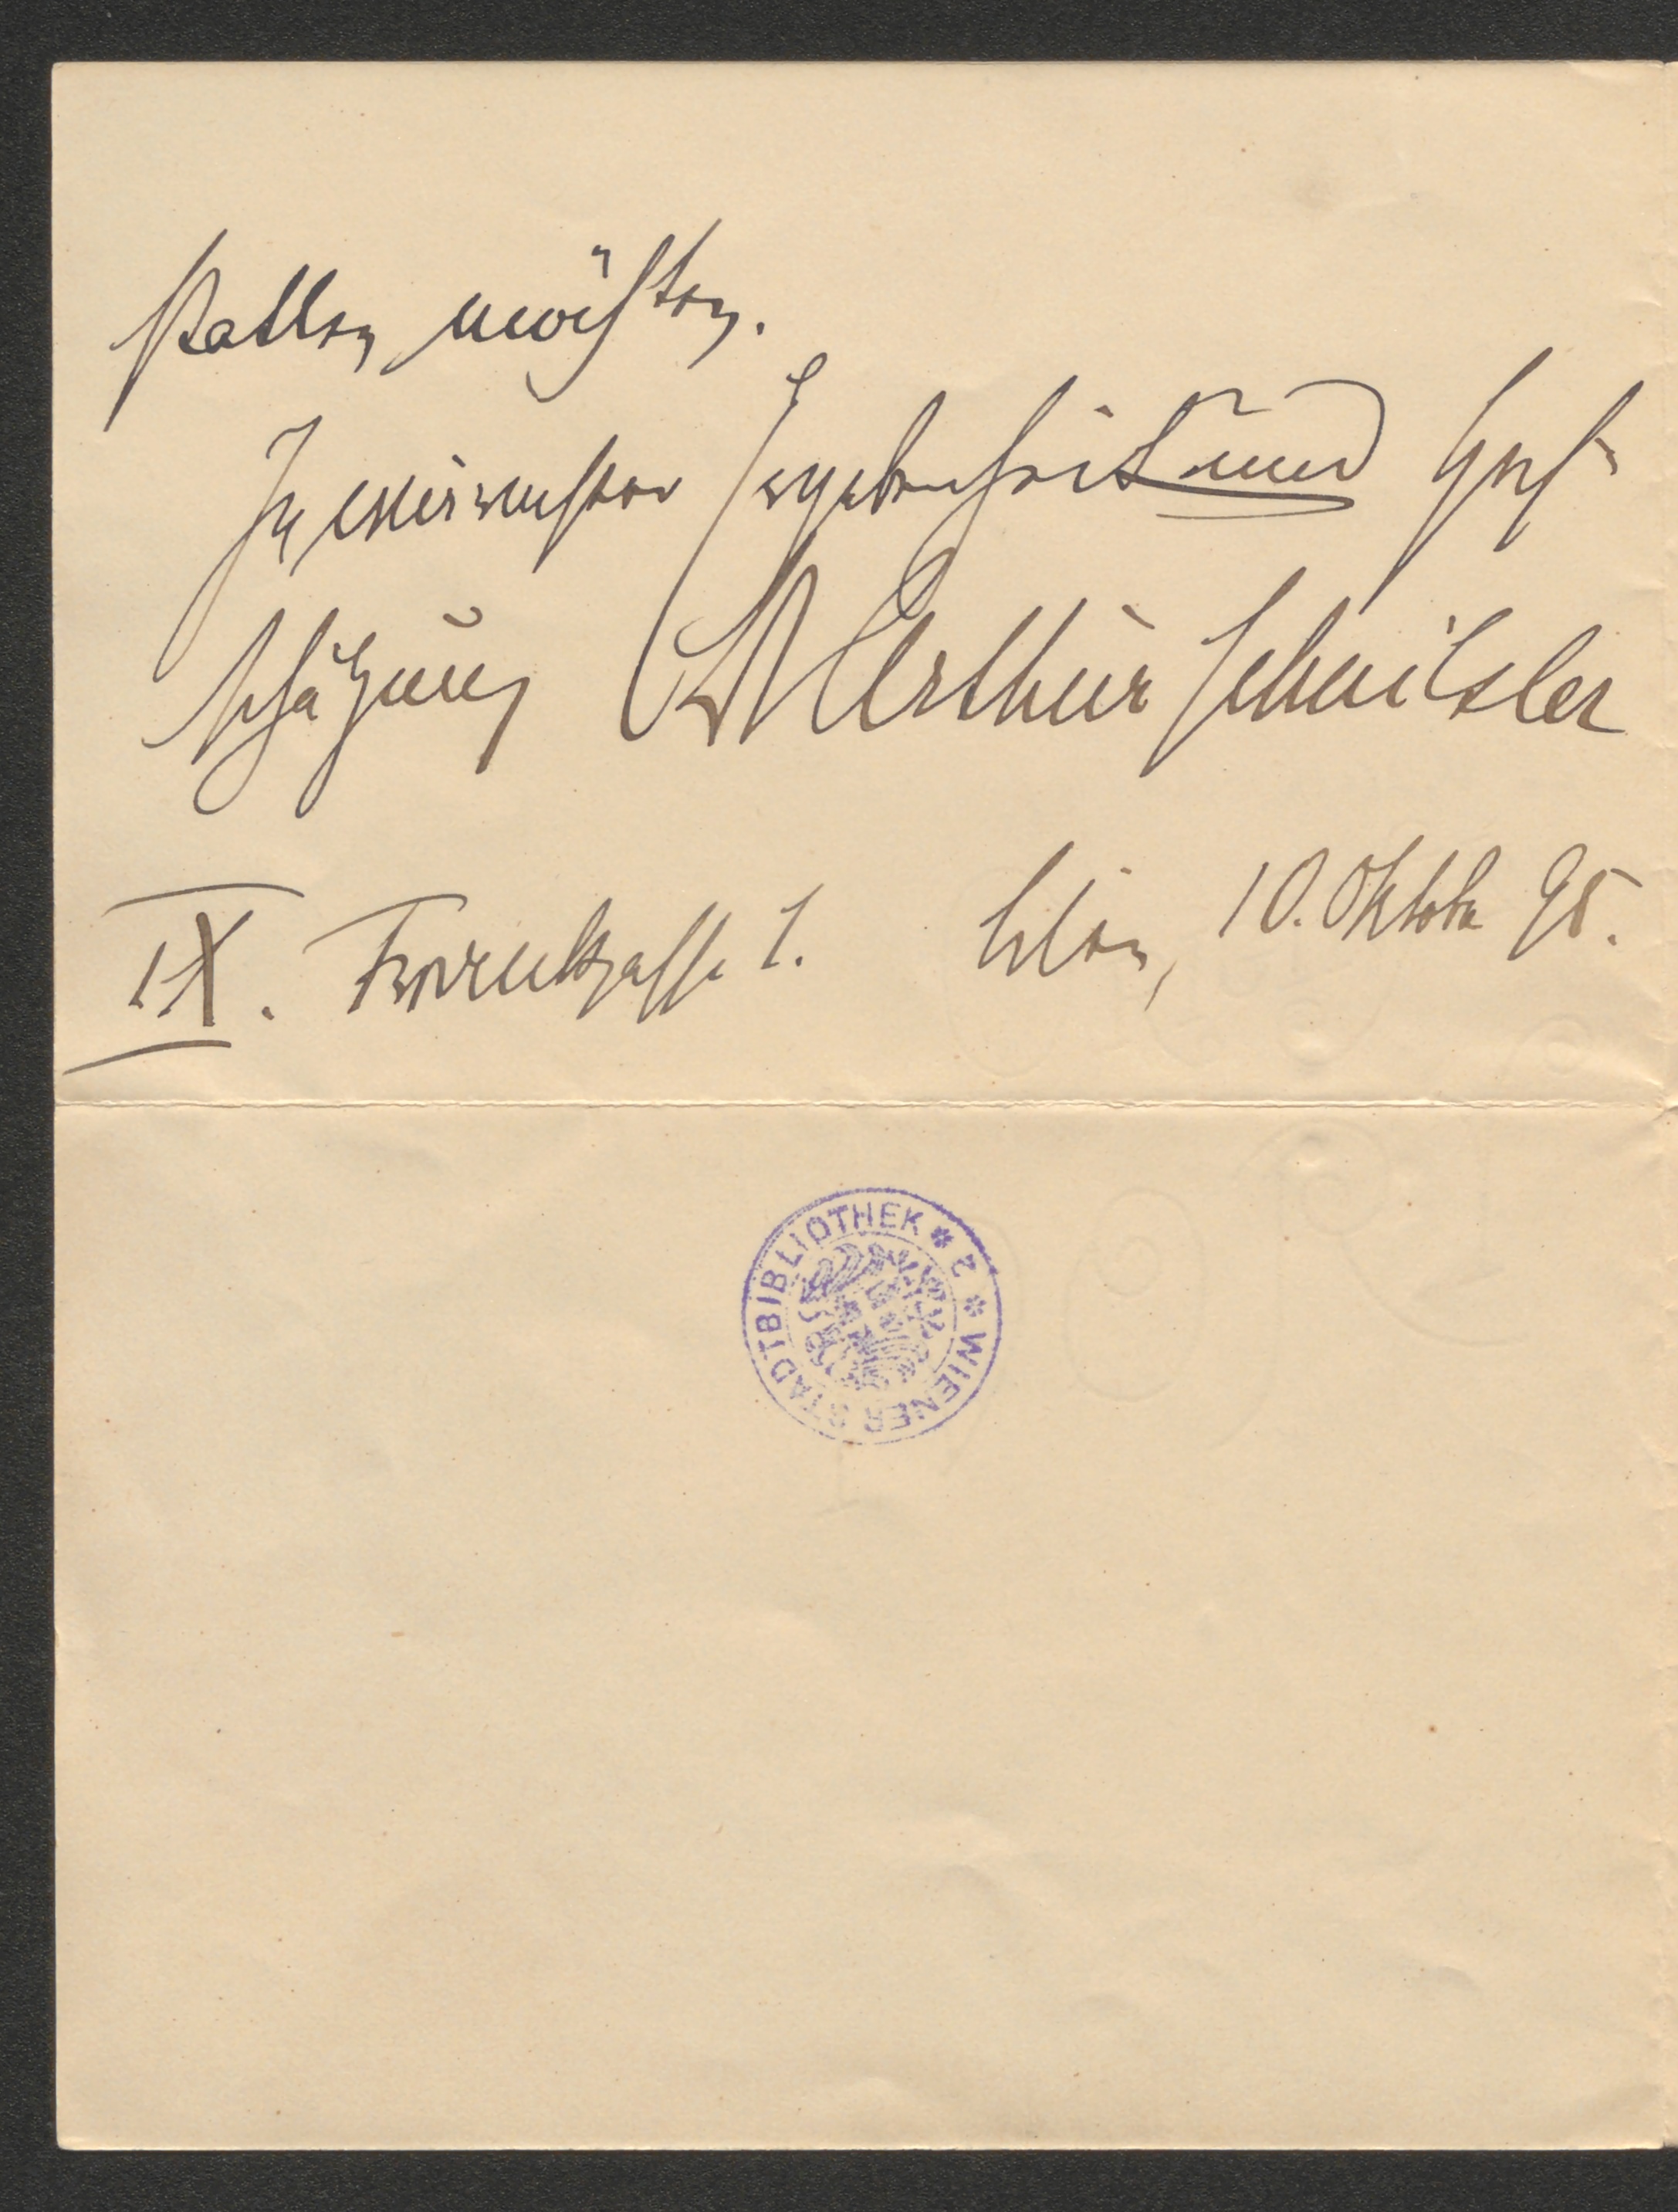 statten möchten.
In  Ergebenheit und Hoch-
schätzung Dr Arthur Schnitzler
IX. Frankgasse 1. Wien, 10. Oktober 95.
WIENER STADTBIBLIOTHEK * 2 *